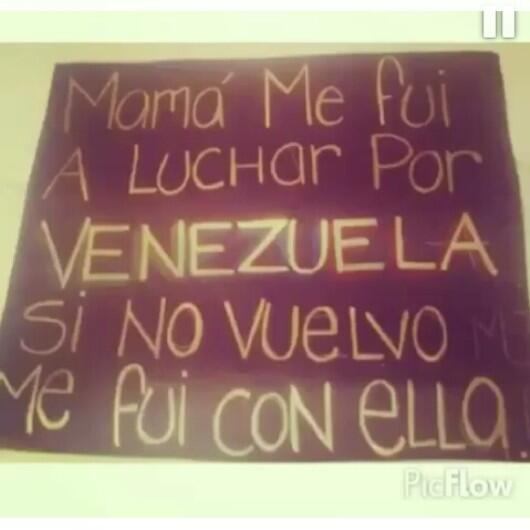 Mamá Me fui
A LUCHar Por
VENEZUELA
Si NO VUELVO ME
Me fui CON ELLA.
PicFlow